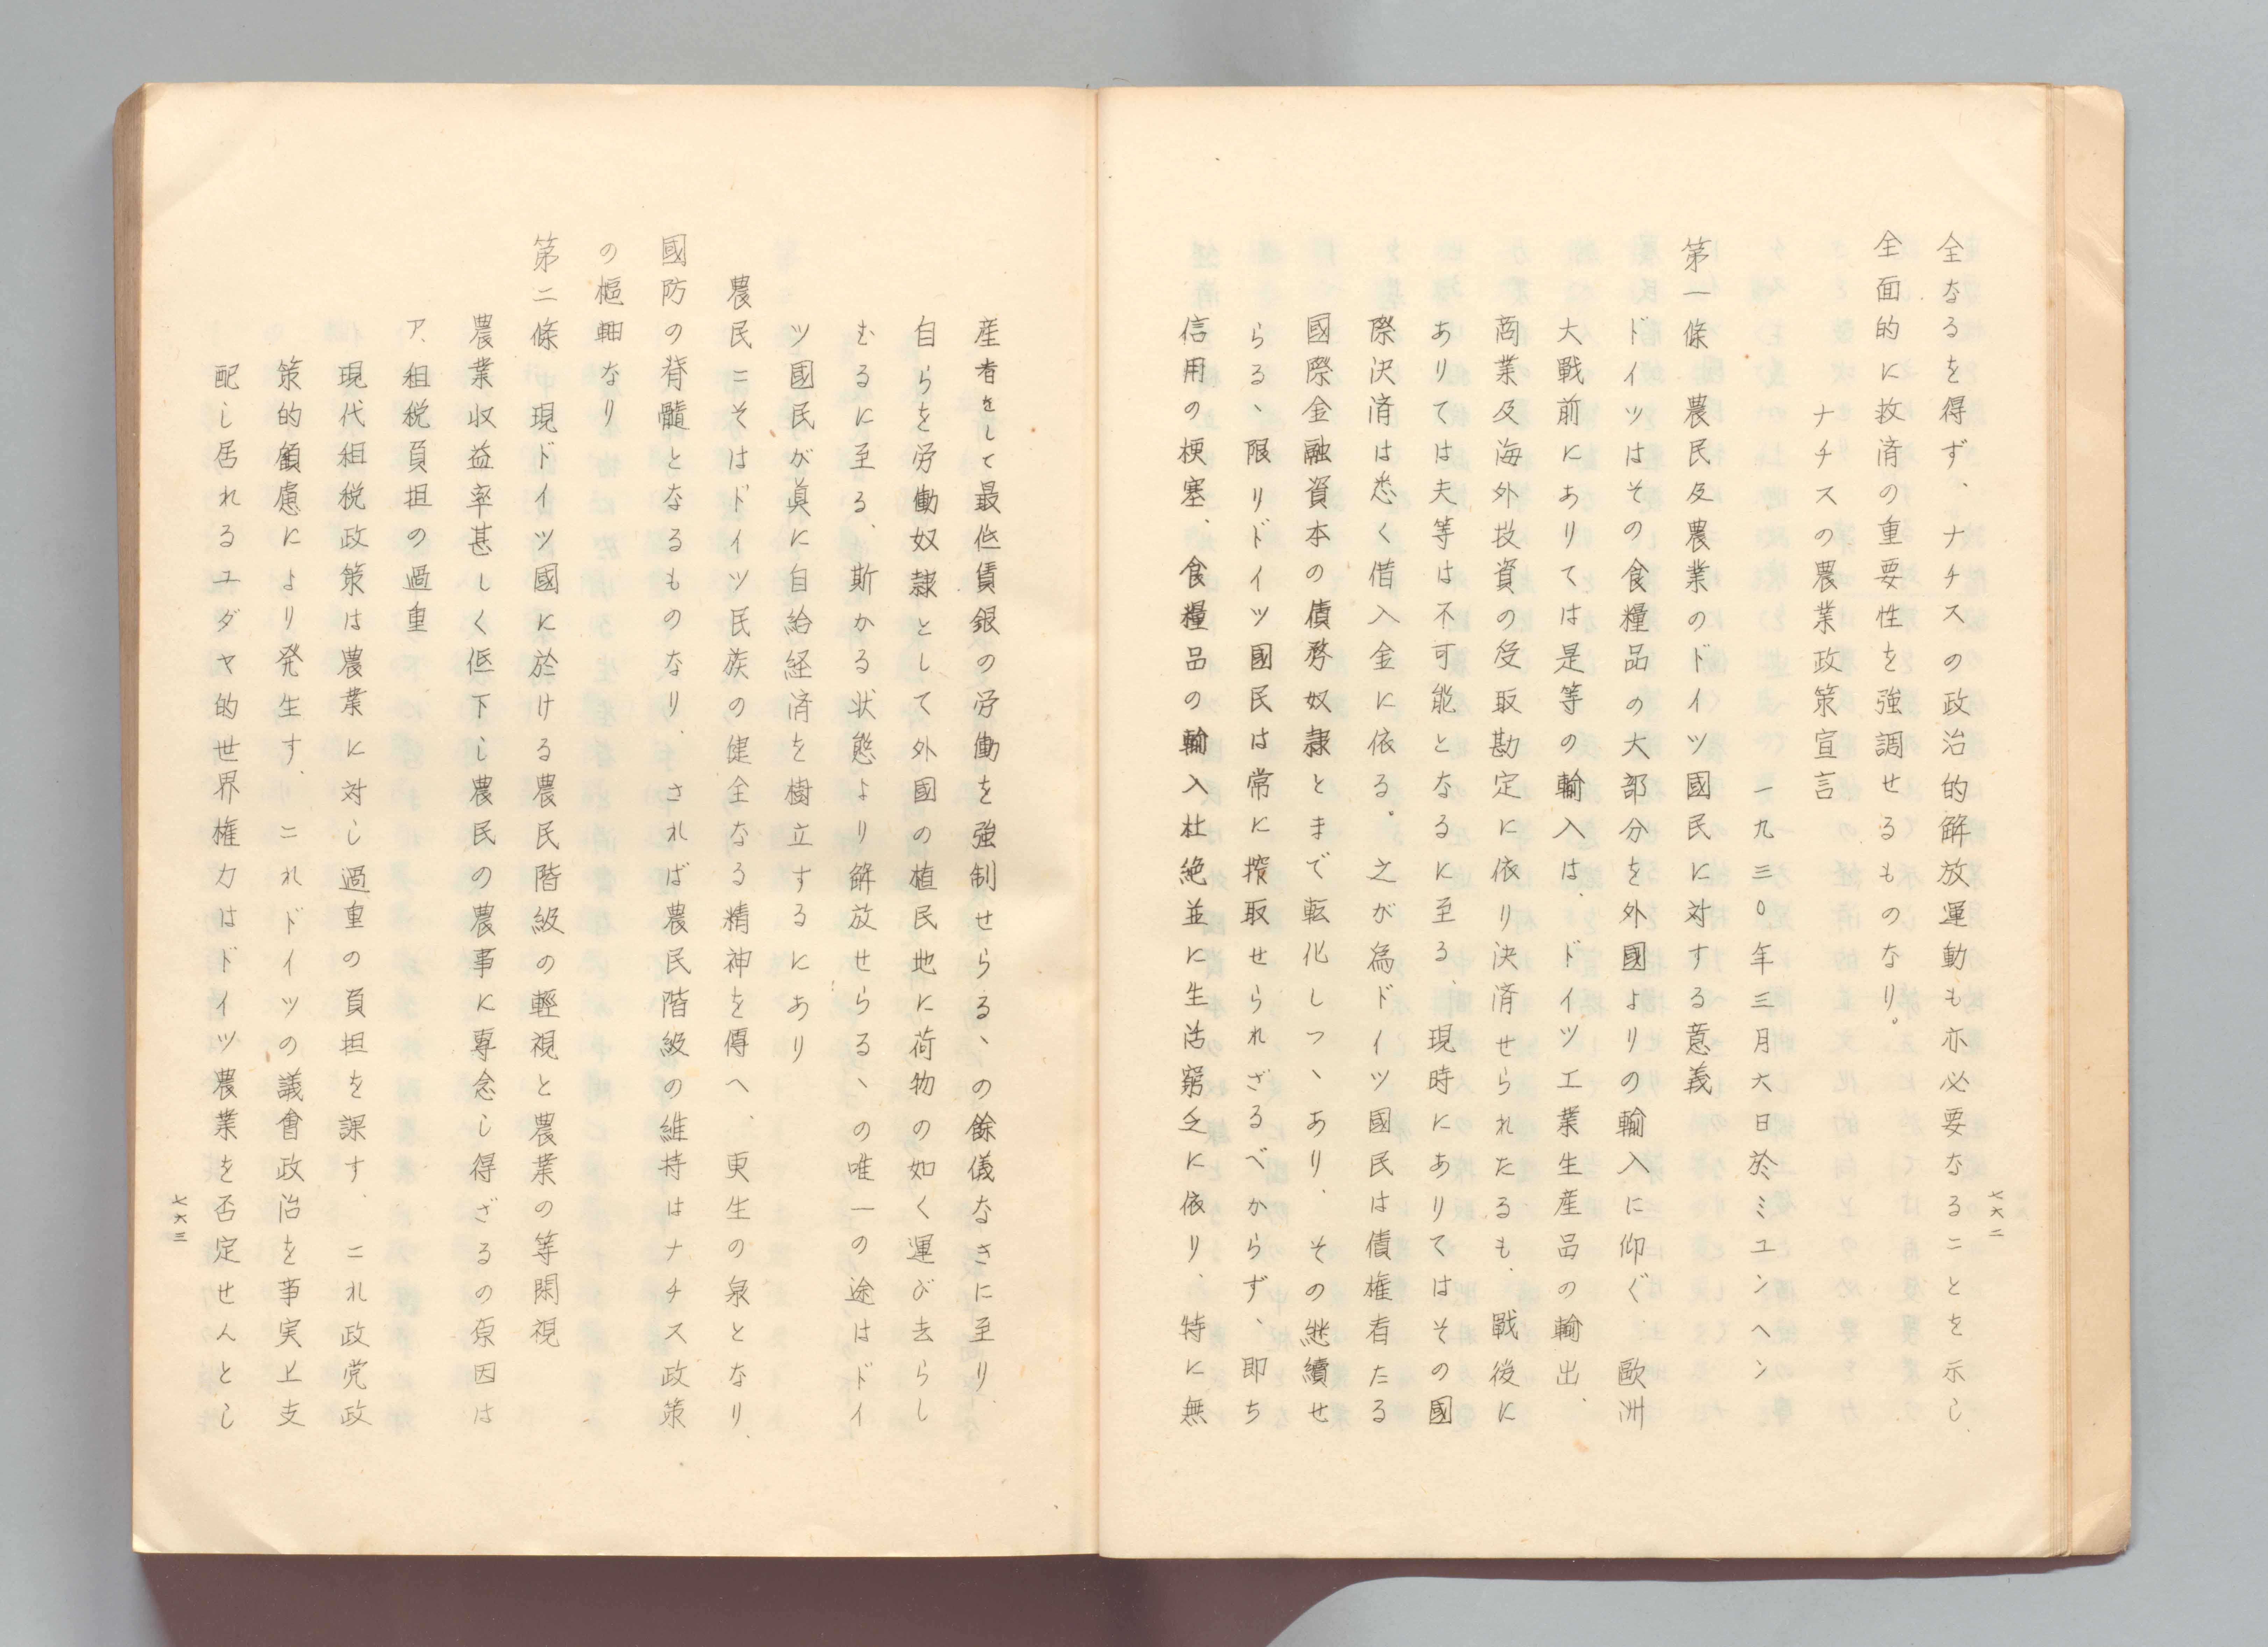 全なるを得ず、ナチスの政治的解放運動も亦必要なることを示し、
全面的に救済の重要性を強調せるものなり。
ナチスの農業政策宣言
一九三〇年三月六日於ミユンヘン
第一條　農民及農業のドイツ國民に対する意義
ドイツはその食糧品の大部分を外國よりの輸入に仰ぐ、歐洲
大戰前にありては是等の輸入は、ドイツ工業生産品の輸出、
商業及海外投資の受取勘定に依り決済せられたるも、戰後に
ありては夫等は不可能となるに至る、現時にありてはその國
際決済は悉く借入金に依る。之が為ドイツ國民は債権者たる
國際金融資本の債務奴隷とまで転化しつヽあり、その継續せ
らるヽ限りドイツ國民は常に搾取せられざるべからず、即ち
信用の梗塞、食糧品の輸入杜絶並に生活窮乏に依り、特に無
七六二
産者をして最低賃銀の労働を強制せらるヽの餘儀なきに至り、
自らを労働奴隷として外國の植民地に荷物の如く運び去らし
むるに至る、斯かる状態より解放せらるヽの唯一の途はドイ
ツ國民が眞に自給経済を樹立するにあり
農民こそはドイツ民族の健全なる精神を傳へ、更生の泉となり、
國防の脊髓となるものなり、されば農民階級の維持はナチス政策
の樞軸なり
第二條　現ドイツ國に於ける農民階級の輕視と農業の等閑視
農業収益率甚しく低下し農民の農事に專念し得ざるの原因は
ア、租税負担の過重
現代租税政策は農業に対し過重の負担を課す、これ政党政
策的顧慮により発生す、これドイツの議會政治を事実上支
配し居れるユダヤ的世界権力はドイツ農業を否定せんとし
七六三